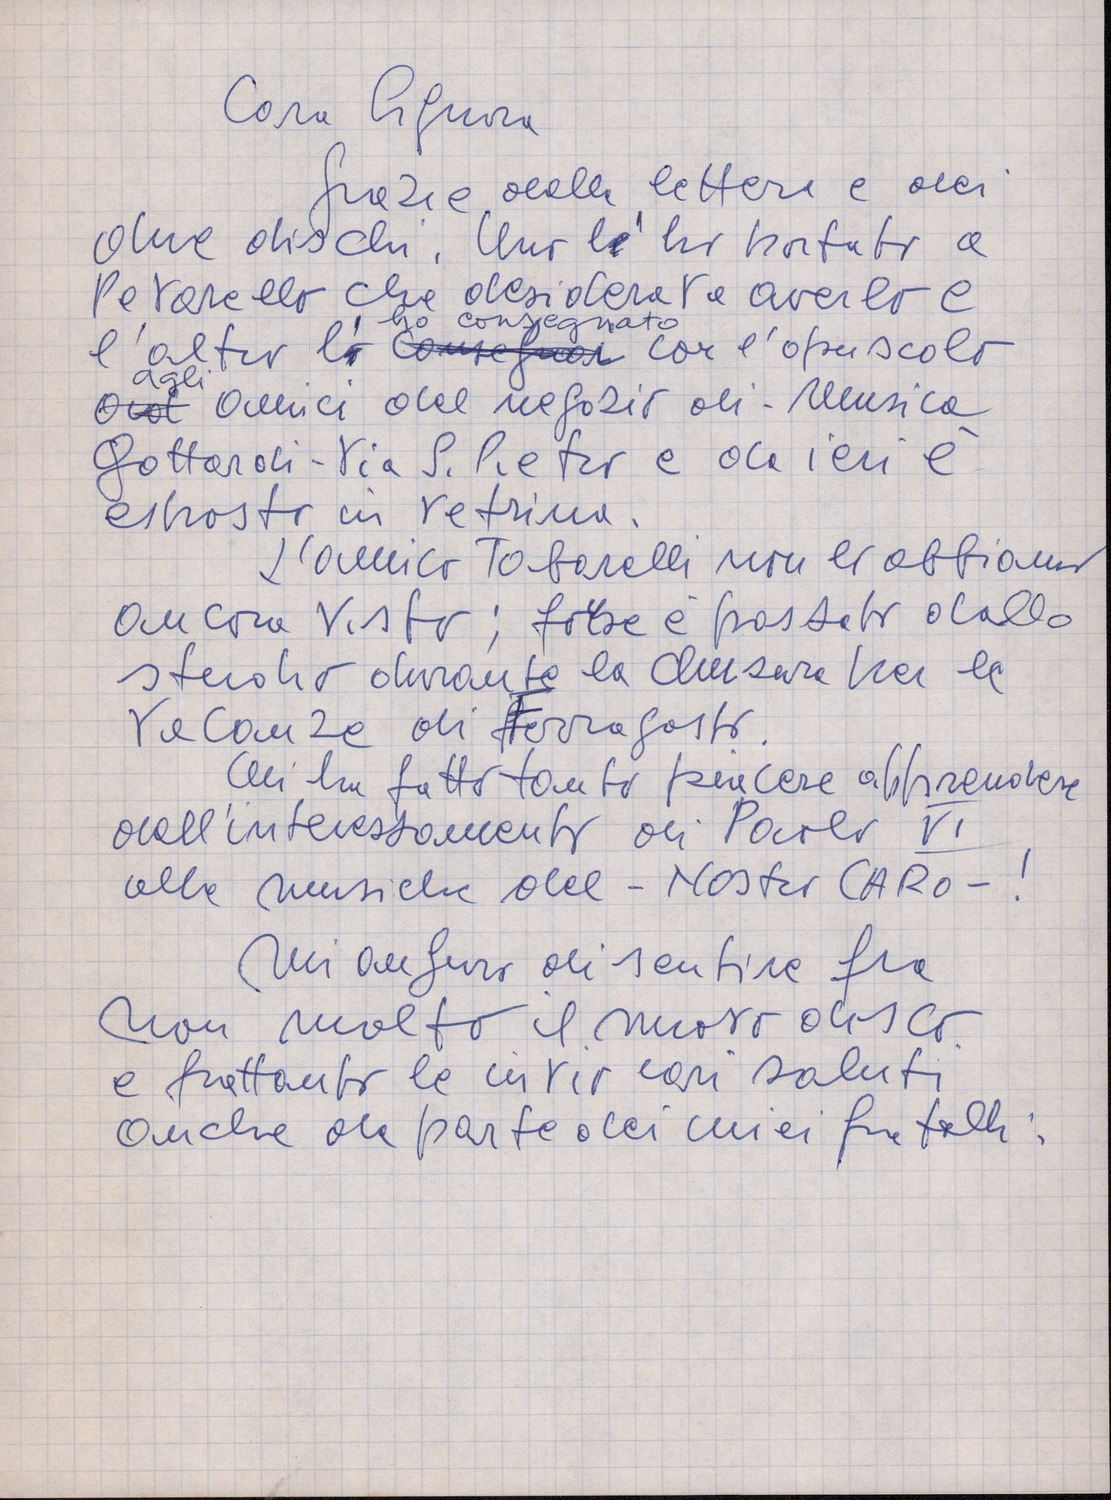 Cara Signora
Grazie della lettera e dei
due dischi. Uno l'ho portato a
Pevarello che desiderava averlo e
ho consegnato
l'altro l' consegnai con l'opuscolo
agli
amici del negozio di - Musica
Gottardi - Via S. Pietro e da ieri è
esposto in vetrina.
L'amico Tabarelli non lo abbiamo
ancora visto; forse è passato dallo
studio durante la chiusura per le
vacanze di Ferragosto.
Mi ha fatto tanto piacere apprendere
dall'interessamento di Paolo VI
alle musiche del - Nostro CARO - !
Mi auguro di sentire fra
non molto il nuovo disco
e frattanto le invio cari saluti
anche da parte dei miei fratelli.